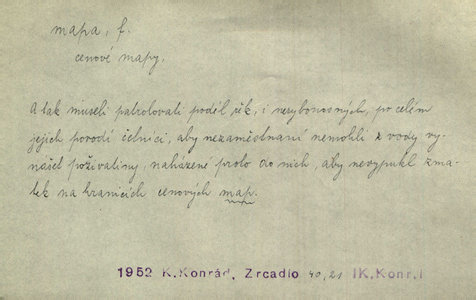 mapa, f.
cenové mapy.
A tak museli patrolovati podél řek, i nerybonosných, po celém
jejich porodí četníci, aby nezaměstnaní nemohli z vody vy-
nášet poživatiny, naházené proto do nich, aby nevypukl zma-
tek na hranicích cenových map.
1952 K.Konrád, Zrcadlo 40,21 IK.Konr.I